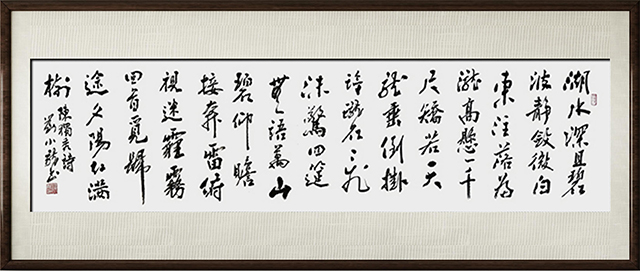 湖水深且碧
波静敛微白
東注落為
瀧高懸一千
尺矯若天
龍垂倒掛
飛
沫驚四筵
無語萬山
碧仰瞻
接奔雷俯
視迷霾霧
回首覓歸
途夕陽紅滿
樹 陳獨秀詩
劉小晴書